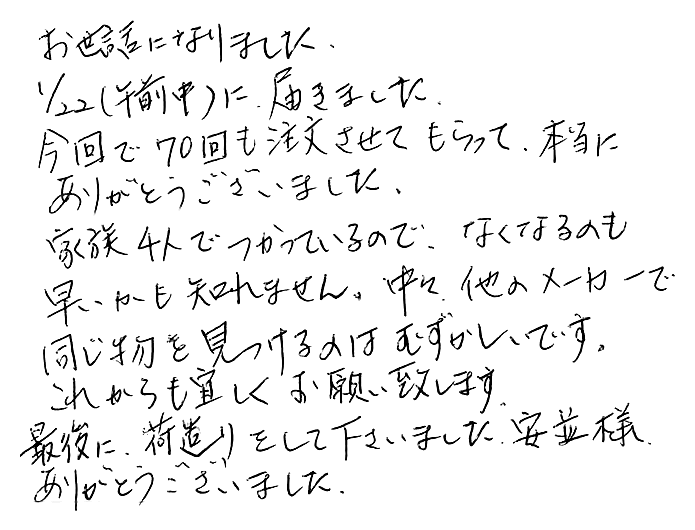 お世話になりました.
1/22(午前中)に.届きました.
今回で70回も注文させてもらって、本当に
ありがとうございました.
家族4人でつかっているので、なくなるのも
早いかも知れません。中々、他のメーカーで
同じ物を見つけるのはむずかしいです。
これからも宜しくお願い致します.
最後に、荷造りをして下さいました、安並様.
ありがとうございました.